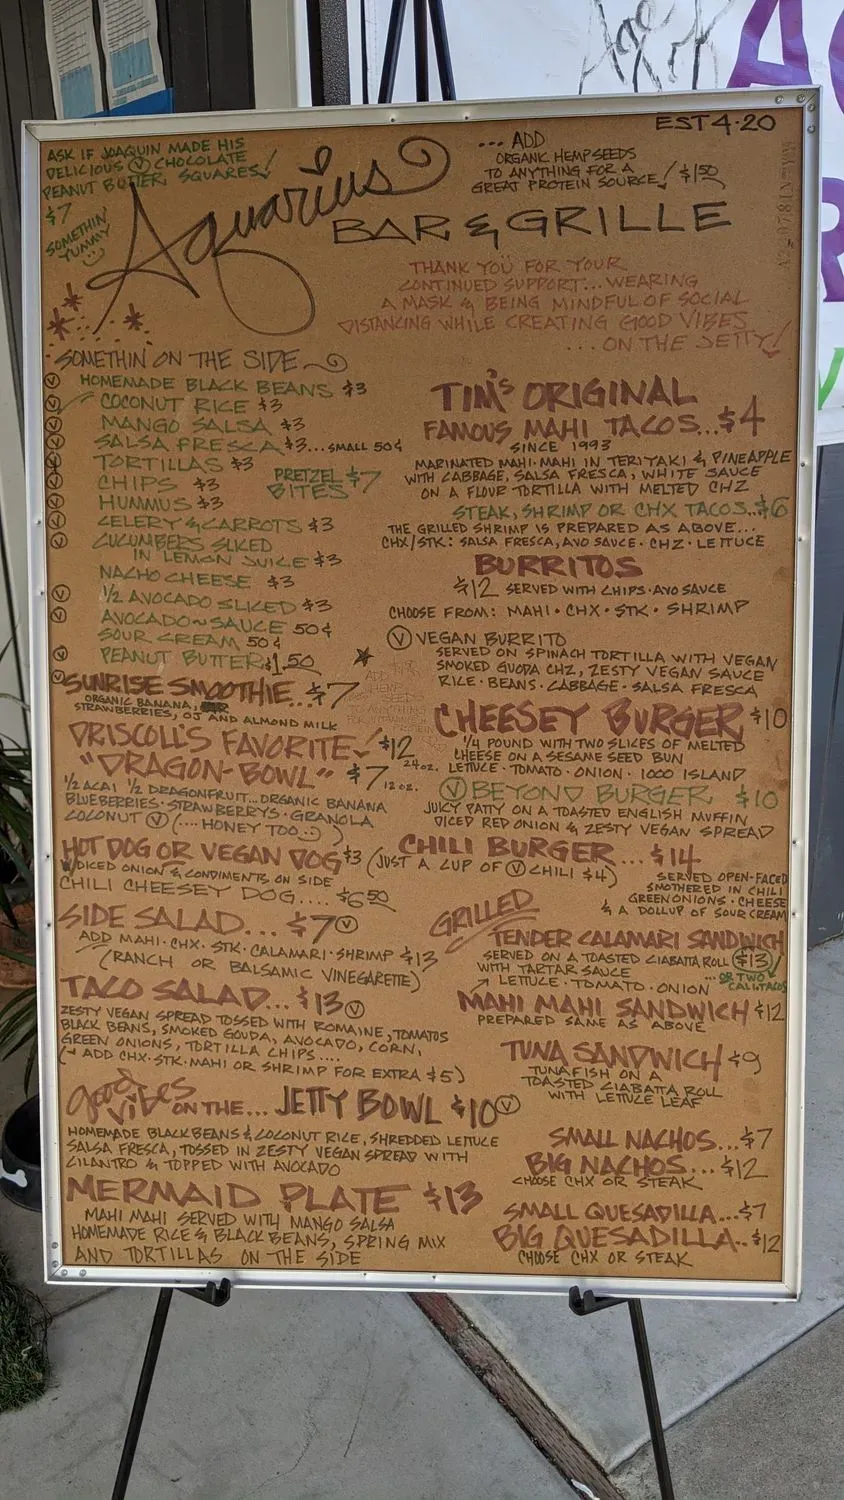 ASK IF JOAQUIN MADE HIS
DELICIOUS Ⓥ CHOCOLATE
PEANUT BUTTER SQUARES!
$7
SOMETHIN'
YUMMY
Aquarius
BAR & GRILLE
EST 4·20
... ADD
ORGANIC HEMPSEEDS
TO ANYTHING FOR A
GREAT PROTEIN SOURCE! $1.50
THANK YOU FOR YOUR
CONTINUED SUPPORT... WEARING
A MASK & BEING MINDFUL OF SOCIAL
DISTANCING WHILE CREATING GOOD VIBES
... ON THE JETTY!
SOMETHIN' ON THE SIDE
Ⓥ HOMEMADE BLACK BEANS $3
Ⓥ COCONUT RICE $3
Ⓥ MANGO SALSA $3
Ⓥ SALSA FRESCA $3... SMALL 50¢
Ⓥ TORTILLAS $3
Ⓥ CHIPS $3
PRETZEL BITES $7
Ⓥ HUMMUS $3
Ⓥ CELERY & CARROTS $3
Ⓥ CUCUMBERS SLICED
IN LEMON JUICE $3
NACHO CHEESE $3
Ⓥ 1/2 AVOCADO SLICED $3
Ⓥ AVOCADO~SAUCE 50¢
SOUR CREAM 50¢
Ⓥ PEANUT BUTTER $1.50
Ⓥ SUNRISE SMOOTHIE... $7
ORGANIC BANANA,
STRAWBERRIES, OJ AND ALMOND MILK
DRISCOLL'S FAVORITE $12 24oz.
"DRAGON-BOWL" $7 12oz.
1/2 ACAI 1/2 DRAGONFRUIT... ORGANIC BANANA
BLUEBERRIES · STRAWBERRYS · GRANOLA
COCONUT Ⓥ (.... HONEY TOO :) )
HOT DOG OR VEGAN DOG $3
W/DICED ONION & CONDIMENTS ON SIDE
(JUST A CUP OF Ⓥ CHILI $4)
CHILI CHEESEY DOG.... $6.50
SIDE SALAD... $7 Ⓥ
ADD MAHI · CHX · STK · CALAMARI · SHRIMP $13
(RANCH OR BALSAMIC VINEGARETTE)
TACO SALAD... $13 Ⓥ
ZESTY VEGAN SPREAD TOSSED WITH ROMAINE, TOMATOS
BLACK BEANS, SMOKED GOUDA, AVOCADO, CORN,
GREEN ONIONS, TORTILLA CHIPS....
(~ ADD CHX · STK · MAHI OR SHRIMP FOR EXTRA $5)
good vibes ON THE... JETTY BOWL $10 Ⓥ
HOMEMADE BLACK BEANS & COCONUT RICE, SHREDDED LETTUCE
SALSA FRESCA, TOSSED IN ZESTY VEGAN SPREAD WITH
CILANTRO & TOPPED WITH AVOCADO
MERMAID PLATE $13
MAHI MAHI SERVED WITH MANGO SALSA
HOMEMADE RICE & BLACK BEANS, SPRING MIX
AND TORTILLAS ON THE SIDE
TIM'S ORIGINAL
FAMOUS MAHI TACOS... $4
SINCE 1993
MARINATED MAHI·MAHI IN TERIYAKI & PINEAPPLE
WITH CABBAGE, SALSA FRESCA, WHITE SAUCE
ON A FLOUR TORTILLA WITH MELTED CHZ
STEAK, SHRIMP OR CHX TACOS... $6
THE GRILLED SHRIMP IS PREPARED AS ABOVE...
CHX/STK: SALSA FRESCA, AVO SAUCE · CHZ · LETTUCE
BURRITOS
$12 SERVED WITH CHIPS · AVO SAUCE
CHOOSE FROM: MAHI · CHX · STK · SHRIMP
Ⓥ VEGAN BURRITO
SERVED ON SPINACH TORTILLA WITH VEGAN
SMOKED GUODA CHZ, ZESTY VEGAN SAUCE
RICE · BEANS · CABBAGE · SALSA FRESCA
CHEESEY BURGER $10
1/4 POUND WITH TWO SLICES OF MELTED
CHEESE ON A SESAME SEED BUN
LETTUCE · TOMATO · ONION · 1000 ISLAND
Ⓥ BEYOND BURGER $10
JUICY PATTY ON A TOASTED ENGLISH MUFFIN
DICED RED ONION & ZESTY VEGAN SPREAD
CHILI BURGER... $14
SERVED OPEN-FACED
SMOTHERED IN CHILI
GREEN ONIONS · CHEESE
& A DOLLUP OF SOUR CREAM
GRILLED
TENDER CALAMARI SANDWICH
SERVED ON A TOASTED CIABATTA ROLL $13
WITH TARTAR SAUCE
LETTUCE · TOMATO · ONION
... OR TWO
CALI.TACOS
MAHI MAHI SANDWICH $12
PREPARED SAME AS ABOVE
TUNA SANDWICH $9
TUNAFISH ON A
TOASTED CIABATTA ROLL
WITH LETTUCE LEAF
SMALL NACHOS... $7
BIG NACHOS... $12
CHOOSE CHX OR STEAK
SMALL QUESADILLA... $7
BIG QUESADILLA.. $12
CHOOSE CHX OR STEAK